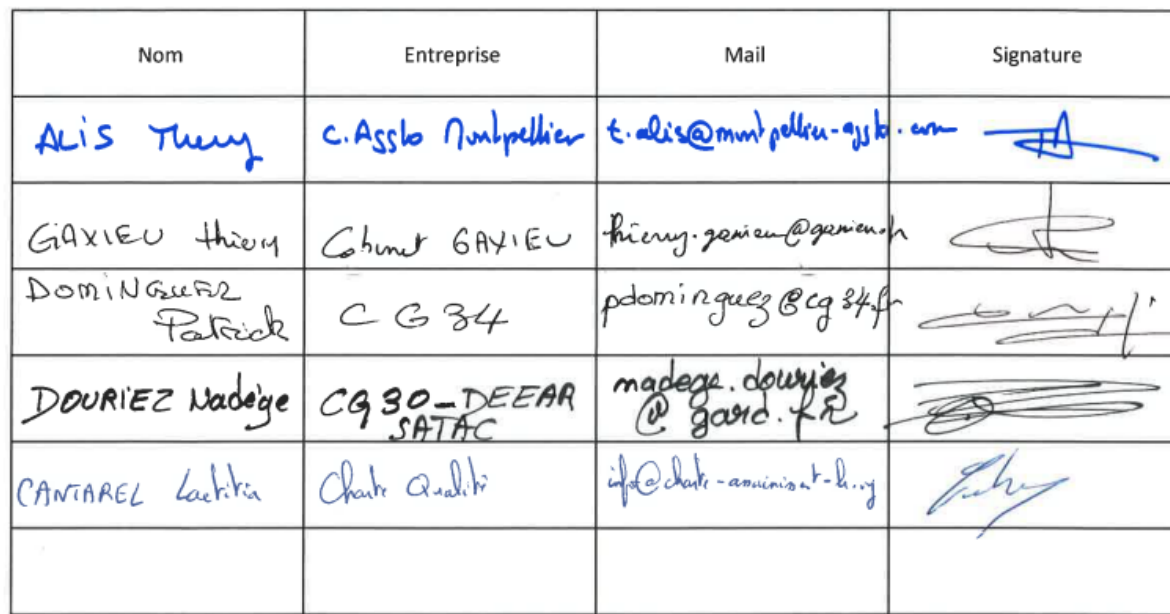 Nom Entreprise Mail Signature
ALIS Thierry C. Agglo Montpellier t.alis@montpellier-agglo.com
GAXIEU thierry Cabinet GAXIEU thierry.gaxieu@gaxieu.fr
DOMINGUEZ
Patrick CG34 pdominguez@cg34.fr
DOURIEZ Nadège CG30_DEEAR
SATAC nadege.douriez
@gard.fr
CANTAREL Laetitia Charte Qualité